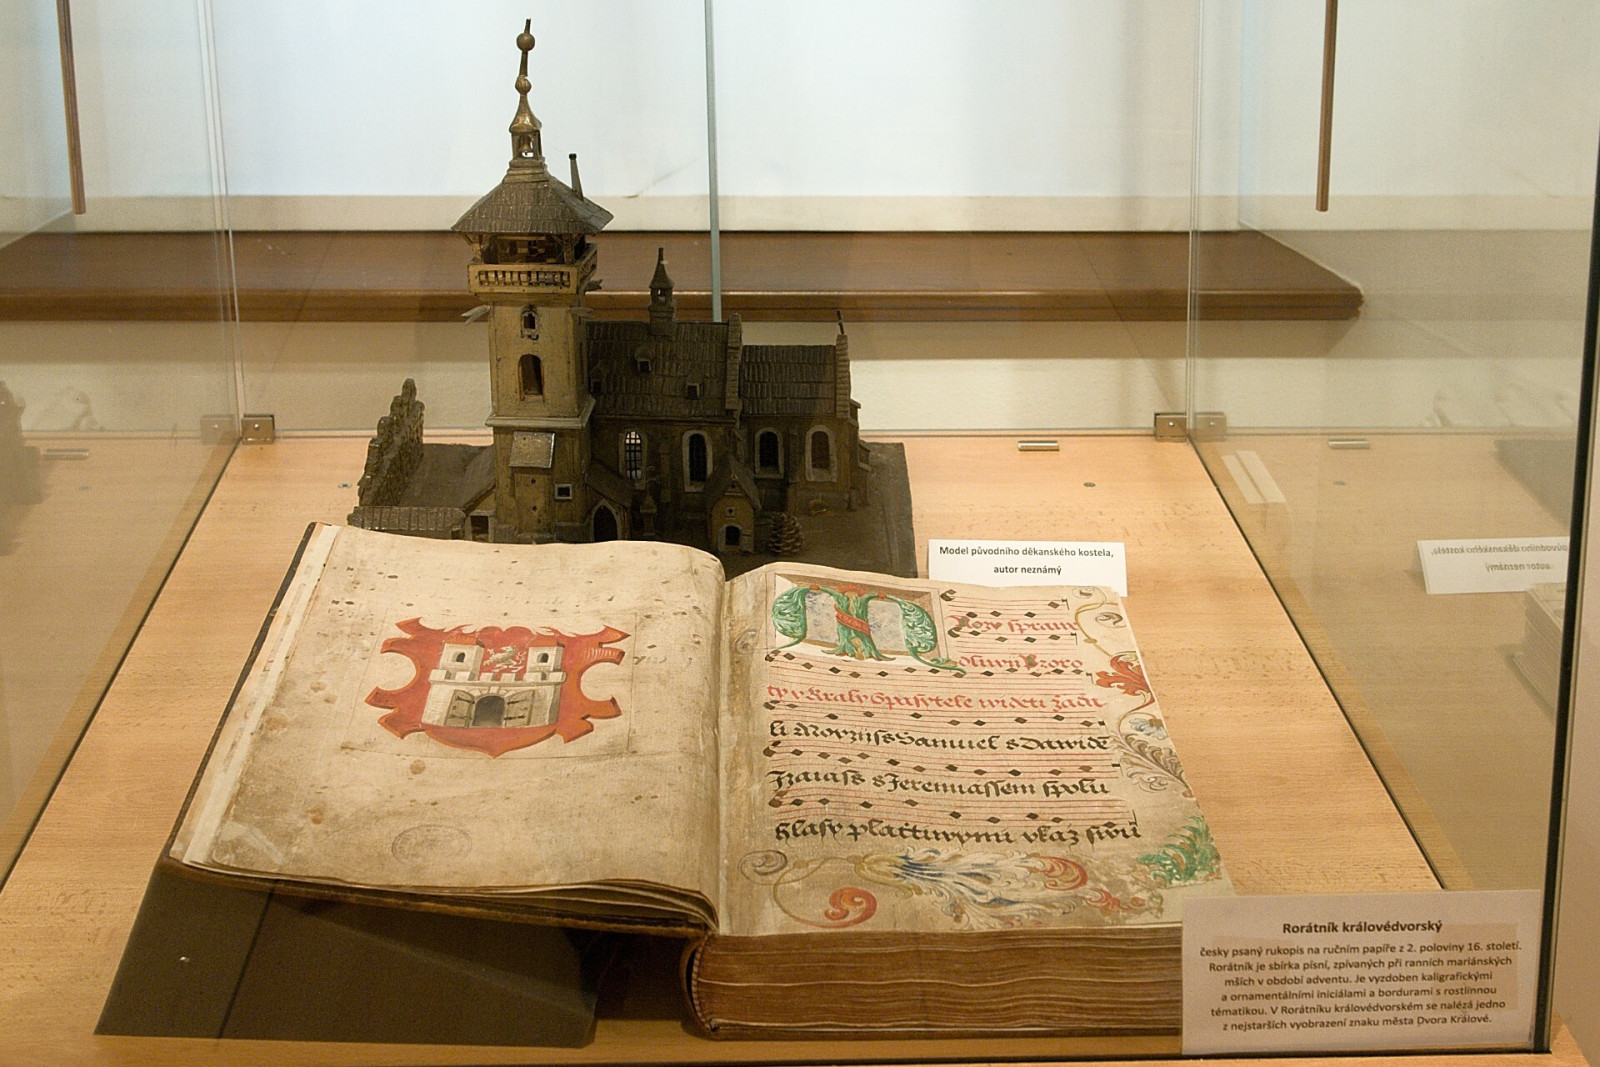 Model původního děkanského kostela,
autor neznámý
li Moyzijss Samuel s Dawidē
Izaiass s Jeremiassem spolu
hlasy
Rorátník královédvorský
česky psaný rukopis na ručním papíře z 2. poloviny 16. století.
Rorátník je sbírka písní, zpívaných při ranních mariánských
mších v období adventu. Je vyzdoben kaligrafickými
a ornamentálními iniciálami a bordurami s rostlinnou
tématikou. V Rorátníku královédvorském se nalézá jedno
z nejstarších vyobrazení znaku města Dvora Králové.